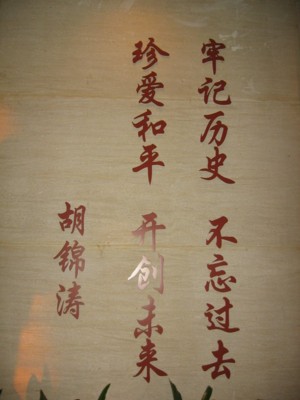 牢记历史 不忘过去
珍爱和平 开创未来
胡锦涛